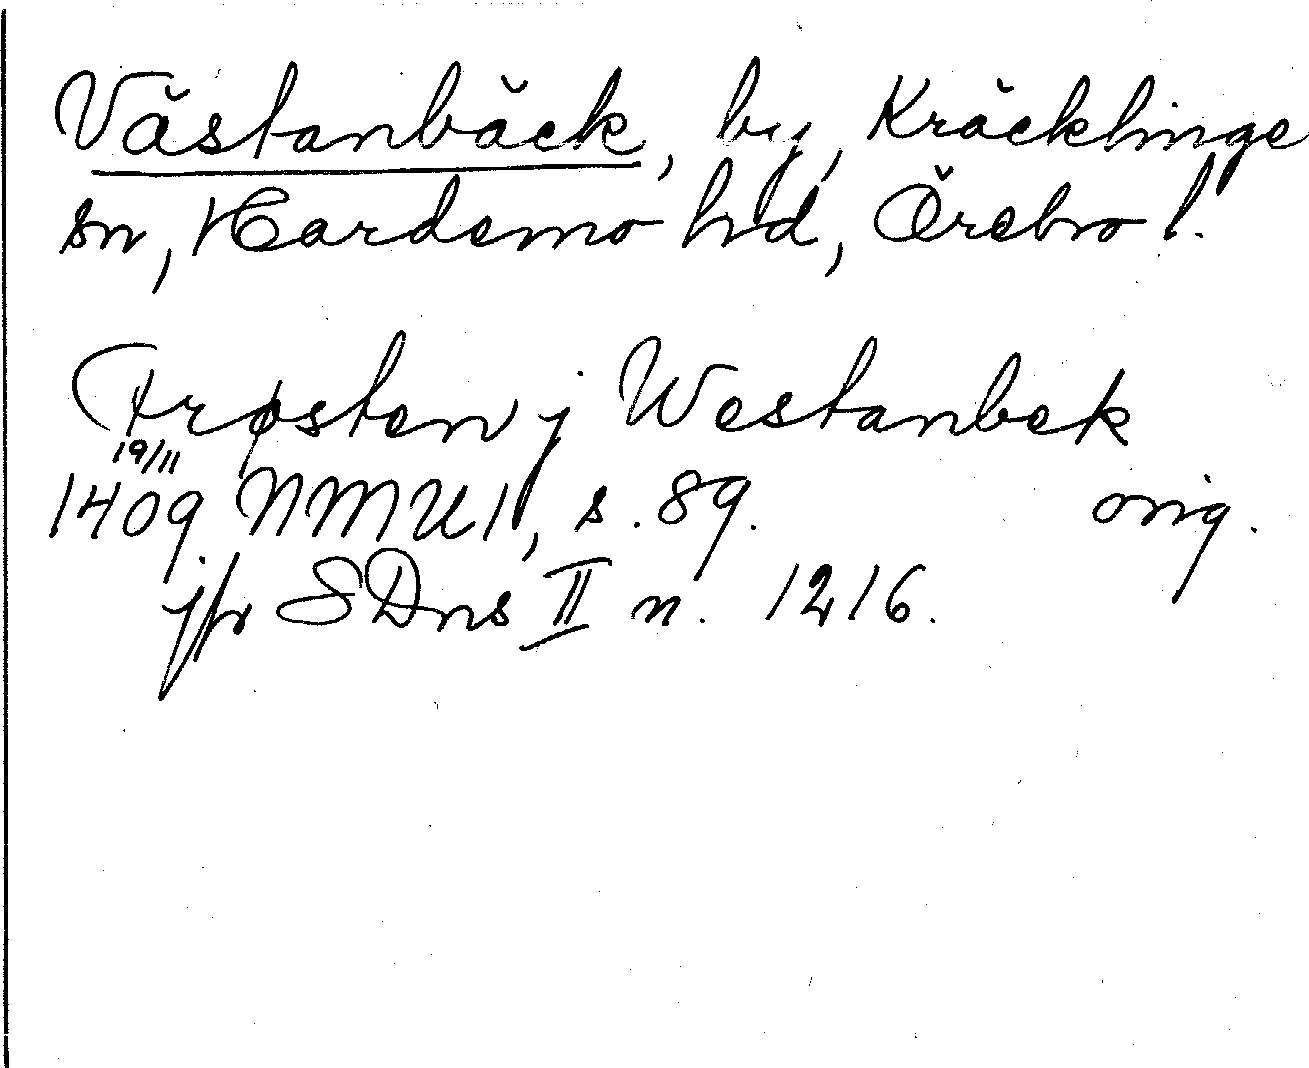 Västanbäck, by, Kräcklinge
sn, Hardemo hd, Örebro l.
Frøsten j Westanbek
19/11
1409 NMU1, s. 89. orig.
jfr SDns II n. 1216.